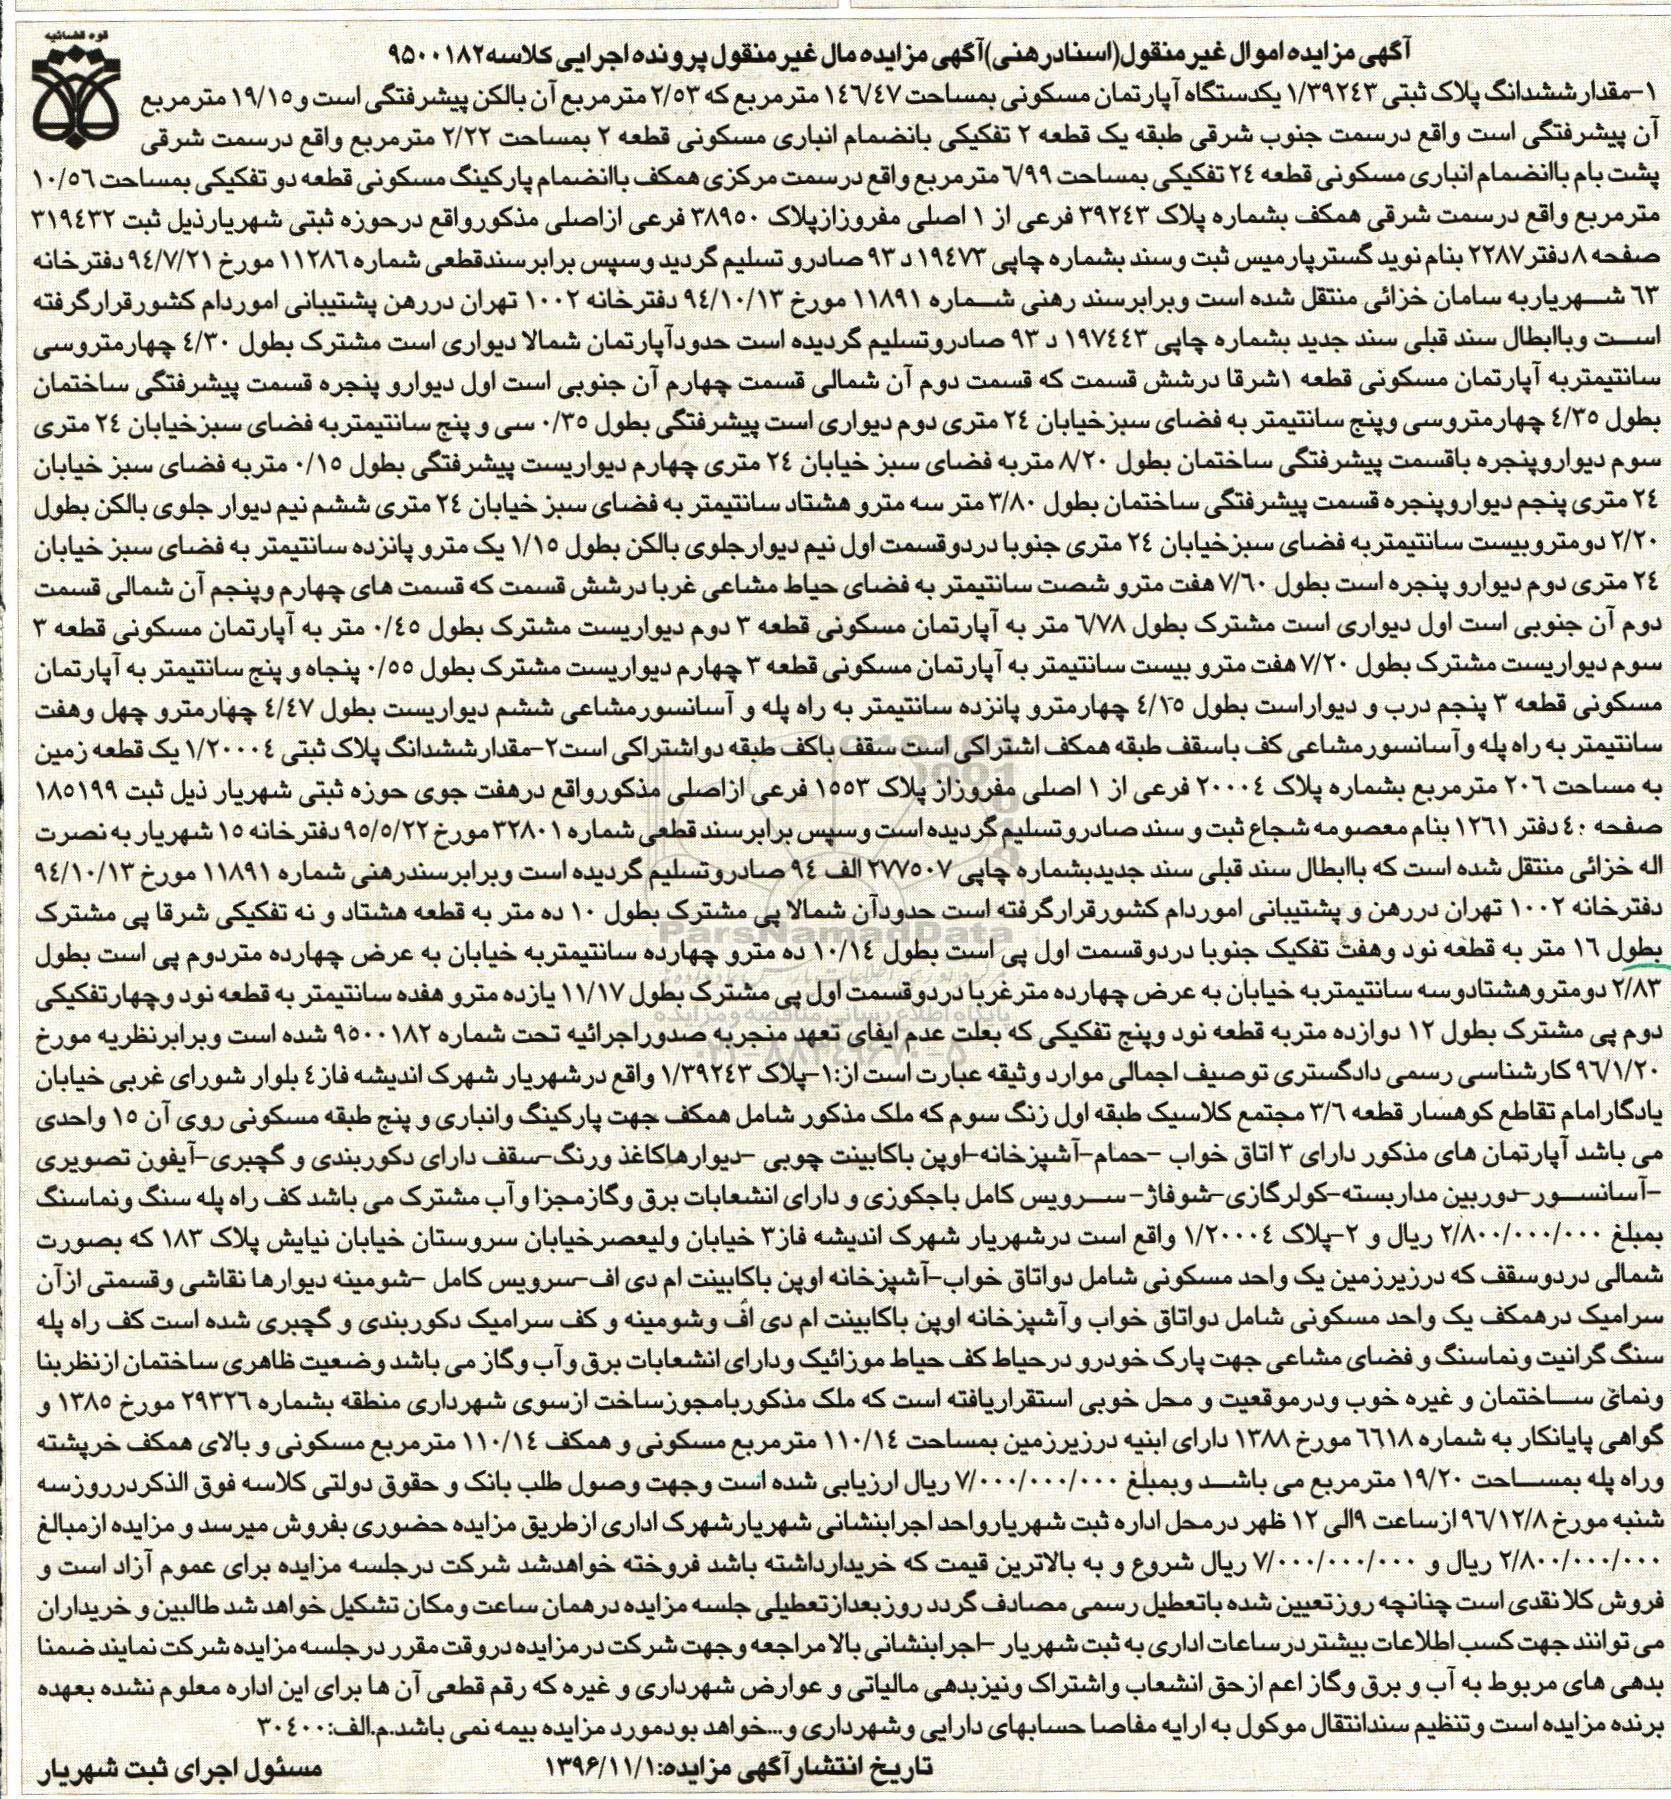 قوه قضائیه
آگهی مزایده اموال غیرمنقول(اسنادرهنی)آگهی مزایده مال غیرمنقول پرونده اجرایی کلاسه۹۵۰۰۱۸۲
۱-مقدارششدانگ پلاک ثبتی ۱/۳۹۲۴۳ یکدستگاه آپارتمان مسکونی بمساحت ۱۴۶/۴۷ مترمربع که ۲/۵۳ مترمربع آن بالکن پیشرفتگی است و۱۹/۱۵ مترمربع
آن پیشرفتگی است واقع درسمت جنوب شرقی طبقه یک قطعه ۲ تفکیکی بانضمام انباری مسکونی قطعه ۲ بمساحت ۲/۲۲ مترمربع واقع درسمت شرقی
پشت بام باانضمام انباری مسکونی قطعه ۲۴ تفکیکی بمساحت ۶/۹۹ مترمربع واقع درسمت مرکزی همکف باانضمام پارکینگ مسکونی قطعه دو تفکیکی بمساحت ۱۰/۵۶
مترمربع واقع درسمت شرقی همکف بشماره پلاک ۳۹۲۴۳ فرعی از ۱ اصلی مفروزازپلاک ۳۸۹۵۰ فرعی ازاصلی مذکورواقع درحوزه ثبتی شهریارذیل ثبت ۳۱۹۴۳۲
صفحه ۸ دفتر۲۲۸۷ بنام نوید گسترپارمیس ثبت وسند بشماره چاپی ۱۹۴۷۳ د ۹۳ صادرو تسلیم گردید وسپس برابرسندقطعی شماره ۱۱۲۸۶ مورخ ۹۴/۷/۲۱ دفترخانه
۶۳ شهریاربه سامان خزائی منتقل شده است وبرابرسند رهنی شماره ۱۱۸۹۱ مورخ ۹۴/۱۰/۱۳ دفترخانه ۱۰۰۲ تهران دررهن پشتیبانی اموردام کشورقرارگرفته
است وباابطال سند قبلی سند جدید بشماره چاپی ۱۹۷۴۴۳ د ۹۳ صادروتسلیم گردیده است حدودآپارتمان شمالا دیواری است مشترک بطول ۴/۳۰ چهارمتروسی
سانتیمتربه آپارتمان مسکونی قطعه ۱شرقا درشش قسمت که قسمت دوم آن شمالی قسمت چهارم آن جنوبی است اول دیوارو پنجره قسمت پیشرفتگی ساختمان
بطول ۴/۳۵ چهارمتروسی وپنج سانتیمتر به فضای سبزخیابان ۲۴ متری دوم دیواری است پیشرفتگی بطول ۰/۳۵ سی و پنج سانتیمتربه فضای سبزخیابان ۲۴ متری
سوم دیواروپنجره باقسمت پیشرفتگی ساختمان بطول ۸/۲۰ متربه فضای سبز خیابان ۲۴ متری چهارم دیواریست پیشرفتگی بطول ۰/۱۵ متربه فضای سبز خیابان
۲۴ متری پنجم دیواروپنجره قسمت پیشرفتگی ساختمان بطول ۳/۸۰ متر سه مترو هشتاد سانتیمتر به فضای سبز خیابان ۲۴ متری ششم نیم دیوار جلوی بالکن بطول
۲/۲۰ دومتروبیست سانتیمتربه فضای سبزخیابان ۲۴ متری جنوبا دردوقسمت اول نیم دیوارجلوی بالکن بطول ۱/۱۵ یک مترو پانزده سانتیمتر به فضای سبز خیابان
۲۴ متری دوم دیوارو پنجره است بطول ۷/۶۰ هفت مترو شصت سانتیمتر به فضای حیاط مشاعی غربا درشش قسمت که قسمت های چهارم وپنجم آن شمالی قسمت
دوم آن جنوبی است اول دیواری است مشترک بطول ۶/۷۸ متر به آپارتمان مسکونی قطعه ۳ دوم دیواریست مشترک بطول ۰/۴۵ متر به آپارتمان مسکونی قطعه ۳
سوم دیواریست مشترک بطول ۷/۲۰ هفت مترو بیست سانتیمتر به آپارتمان مسکونی قطعه ۳ چهارم دیواریست مشترک بطول ۰/۵۵ پنجاه و پنج سانتیمتر به آپارتمان
مسکونی قطعه ۳ پنجم درب و دیواراست بطول ۴/۱۵ چهارمترو پانزده سانتیمتر به راه پله و آسانسورمشاعی ششم دیواریست بطول ۴/۴۷ چهارمترو چهل وهفت
سانتیمتر به راه پله وآسانسورمشاعی کف باسقف طبقه همکف اشتراکی است سقف باکف طبقه دواشتراکی است۲-مقدارششدانگ پلاک ثبتی ۱/۲۰۰۰۴ یک قطعه زمین
به مساحت ۲۰۶ مترمربع بشماره پلاک ۲۰۰۰۴ فرعی از ۱ اصلی مفروزاز پلاک ۱۵۵۳ فرعی ازاصلی مذکورواقع درهفت جوی حوزه ثبتی شهریار ذیل ثبت ۱۸۵۱۹۹
صفحه ۴۰ دفتر ۱۲۶۱ بنام معصومه شجاع ثبت و سند صادروتسلیم گردیده است وسپس برابرسند قطعی شماره ۳۲۸۰۱ مورخ ۹۵/۵/۲۲ دفترخانه ۱۵ شهریار به نصرت
اله خزائی منتقل شده است که باابطال سند قبلی سند جدیدبشماره چاپی ۲۷۷۵۰۷ الف ۹۴ صادروتسلیم گردیده است وبرابرسندرهنی شماره ۱۱۸۹۱ مورخ ۹۴/۱۰/۱۳
دفترخانه ۱۰۰۲ تهران دررهن و پشتیبانی اموردام کشورقرارگرفته است حدودآن شمالا پی مشترک بطول ۱۰ ده متر به قطعه هشتاد و نه تفکیکی شرقا پی مشترک
بطول ۱۶ متر به قطعه نود وهفت تفکیک جنوبا دردوقسمت اول پی است بطول ۱۰/۱۴ ده مترو چهارده سانتیمتربه خیابان به عرض چهارده متردوم پی است بطول
۲/۸۳ دومتروهشتادوسه سانتیمتربه خیابان به عرض چهارده مترغربا دردوقسمت اول پی مشترک بطول ۱۱/۱۷ یازده مترو هفده سانتیمتر به قطعه نود وچهارتفکیکی
دوم پی مشترک بطول ۱۲ دوازده متربه قطعه نود وپنج تفکیکی که بعلت عدم ایفای تعهد منجربه صدوراجرائیه تحت شماره ۹۵۰۰۱۸۲ شده است وبرابرنظریه مورخ
۹۶/۱/۲۰ کارشناسی رسمی دادگستری توصیف اجمالی موارد وثیقه عبارت است از:۱-پلاک ۱/۳۹۲۴۳ واقع درشهریار شهرک اندیشه فاز۴ بلوار شورای غربی خیابان
یادگارامام تقاطع کوهسار قطعه ۳/۶ مجتمع کلاسیک طبقه اول زنگ سوم که ملک مذکور شامل همکف جهت پارکینگ وانباری و پنج طبقه مسکونی روی آن ۱۵ واحدی
می باشد آپارتمان های مذکور دارای ۳ اتاق خواب -حمام-آشپزخانه-اوپن باکابینت چوبی -دیوارهاکاغذ ورنگ-سقف دارای دکوربندی و گچبری-آیفون تصویری
-آسانسور-دوربین مداربسته-کولرگازی-شوفاژ- سرویس کامل باجکوزی و دارای انشعابات برق وگازمجزا وآب مشترک می باشد کف راه پله سنگ ونماسنگ
بمبلغ ۲/۸۰۰/۰۰۰/۰۰۰ ریال و ۲-پلاک ۱/۲۰۰۰۴ واقع است درشهریار شهرک اندیشه فاز۳ خیابان ولیعصرخیابان سروستان خیابان نیایش پلاک ۱۸۳ که بصورت
شمالی دردوسقف که درزیرزمین یک واحد مسکونی شامل دواتاق خواب-آشپزخانه اوپن باکابینت ام دی اف-سرویس کامل -شومینه دیوارها نقاشی وقسمتی ازآن
سرامیک درهمکف یک واحد مسکونی شامل دواتاق خواب وآشپزخانه اوپن باکابینت ام دی اف وشومینه و کف سرامیک دکوربندی و گچبری شده است کف راه پله
سنگ گرانیت ونماسنگ و فضای مشاعی جهت پارک خودرو درحیاط کف حیاط موزائیک ودارای انشعابات برق وآب وگاز می باشد وضعیت ظاهری ساختمان ازنظربنا
ونمای ساختمان و غیره خوب ودرموقعیت و محل خوبی استقراریافته است که ملک مذکوربامجوزساخت ازسوی شهرداری منطقه بشماره ۲۹۳۲۶ مورخ ۱۳۸۵ و
گواهی پایانکار به شماره ۶۶۱۸ مورخ ۱۳۸۸ دارای ابنیه درزیرزمین بمساحت ۱۱۰/۱۴ مترمربع مسکونی و همکف ۱۱۰/۱۴ مترمربع مسکونی و بالای همکف خرپشته
وراه پله بمساحت ۱۹/۲۰ مترمربع می باشد وبمبلغ ۷/۰۰۰/۰۰۰/۰۰۰ ریال ارزیابی شده است وجهت وصول طلب بانک و حقوق دولتی کلاسه فوق الذکردرروزسه
شنبه مورخ ۹۶/۱۲/۸ ازساعت ۹الی ۱۲ ظهر درمحل اداره ثبت شهریارواحد اجرابنشانی شهریارشهرک اداری ازطریق مزایده حضوری بفروش میرسد و مزایده ازمبالغ
۲/۸۰۰/۰۰۰/۰۰۰ ریال و ۷/۰۰۰/۰۰۰/۰۰۰ ریال شروع و به بالاترین قیمت که خریدارداشته باشد فروخته خواهدشد شرکت درجلسه مزایده برای عموم آزاد است و
فروش کلا نقدی است چنانچه روزتعیین شده باتعطیل رسمی مصادف گردد روزبعدازتعطیلی جلسه مزایده درهمان ساعت ومکان تشکیل خواهد شد طالبین و خریداران
می توانند جهت کسب اطلاعات بیشتردرساعات اداری به ثبت شهریار -اجرابنشانی بالا مراجعه وجهت شرکت درمزایده دروقت مقرر درجلسه مزایده شرکت نمایند ضمنا
بدهی های مربوط به آب و برق وگاز اعم ازحق انشعاب واشتراک ونیزبدهی مالیاتی و عوارض شهرداری و غیره که رقم قطعی آن ها برای این اداره معلوم نشده بعهده
برنده مزایده است وتنظیم سندانتقال موکول به ارایه مفاصا حسابهای دارایی وشهرداری و...خواهد بودمورد مزایده بیمه نمی باشد.م.الف:۳۰۴۰۰
تاریخ انتشارآگهی مزایده:۱۳۹۶/۱۱/۱ مسئول اجرای ثبت شهریار
ParsNamadData
پایگاه اطلاع رسانی مناقصه و مزایده